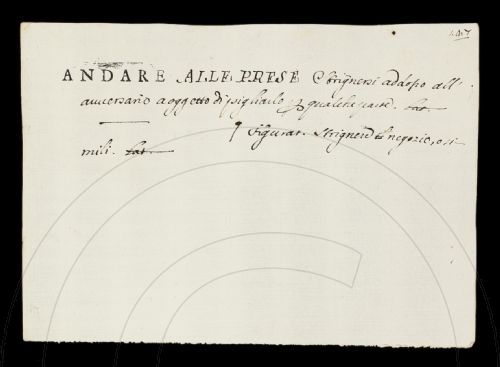 147
ANDARE ALLE PRESE Strignersi addosso all'
avversario a oggetto di pigliarlo p qualche parte. Lat.
¶ Figurat. Strignere il negozio, o si-
mili. Lat.